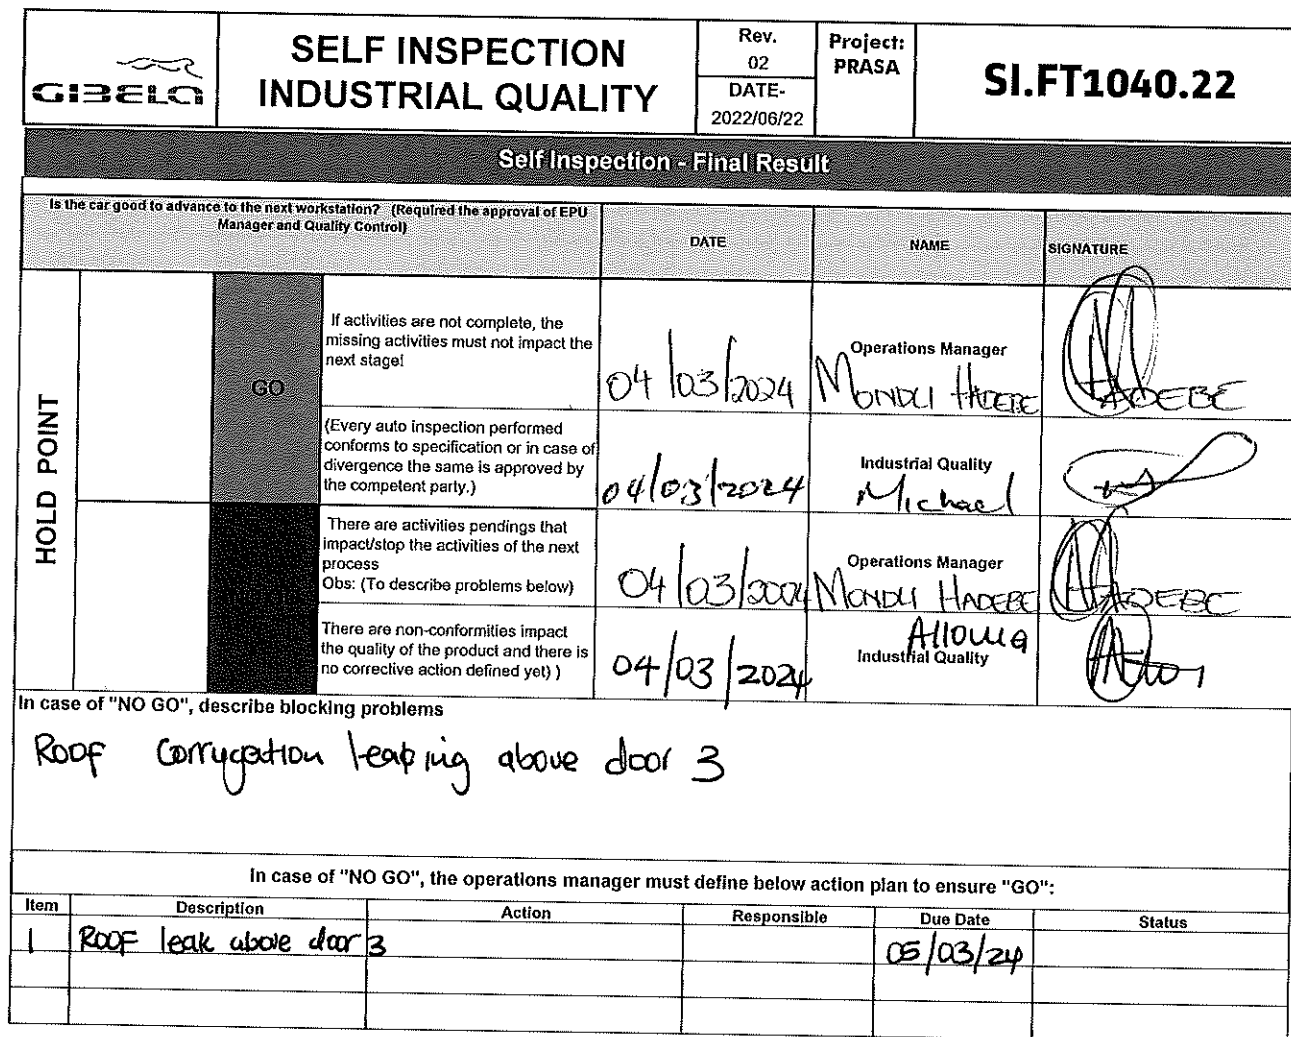 GIBELA
SELF INSPECTION
INDUSTRIAL QUALITY
Rev.
02
DATE-
2022/06/22
Project:
PRASA
SI.FT1040.22
Self Inspection - Final Result
Is the car good to advance to the next workstation? (Required the approval of EPU
Manager and Quality Control)
DATE
NAME
SIGNATURE
HOLD POINT
GO
If activities are not complete, the
missing activities must not impact the
next stage!
04/03/2024
Operations Manager
MONDLI HADEBE
HADEBE
(Every auto inspection performed
conforms to specification or in case of
divergence the same is approved by
the competent party.)
04/03/2024
Industrial Quality
Michael
There are activities pendings that
impact/stop the activities of the next
process
Obs: (To describe problems below)
04/03/2004
Operations Manager
MONDLI HADEBE
HADEBE
There are non-conformities impact
the quality of the product and there is
no corrective action defined yet) )
04/03/2024
Industrial Quality
In case of "NO GO", describe blocking problems
Roof corrugation leaking above door 3
In case of "NO GO", the operations manager must define below action plan to ensure "GO":
Item Description Action Responsible Due Date Status
1 Roof leak above door 3 05/03/24